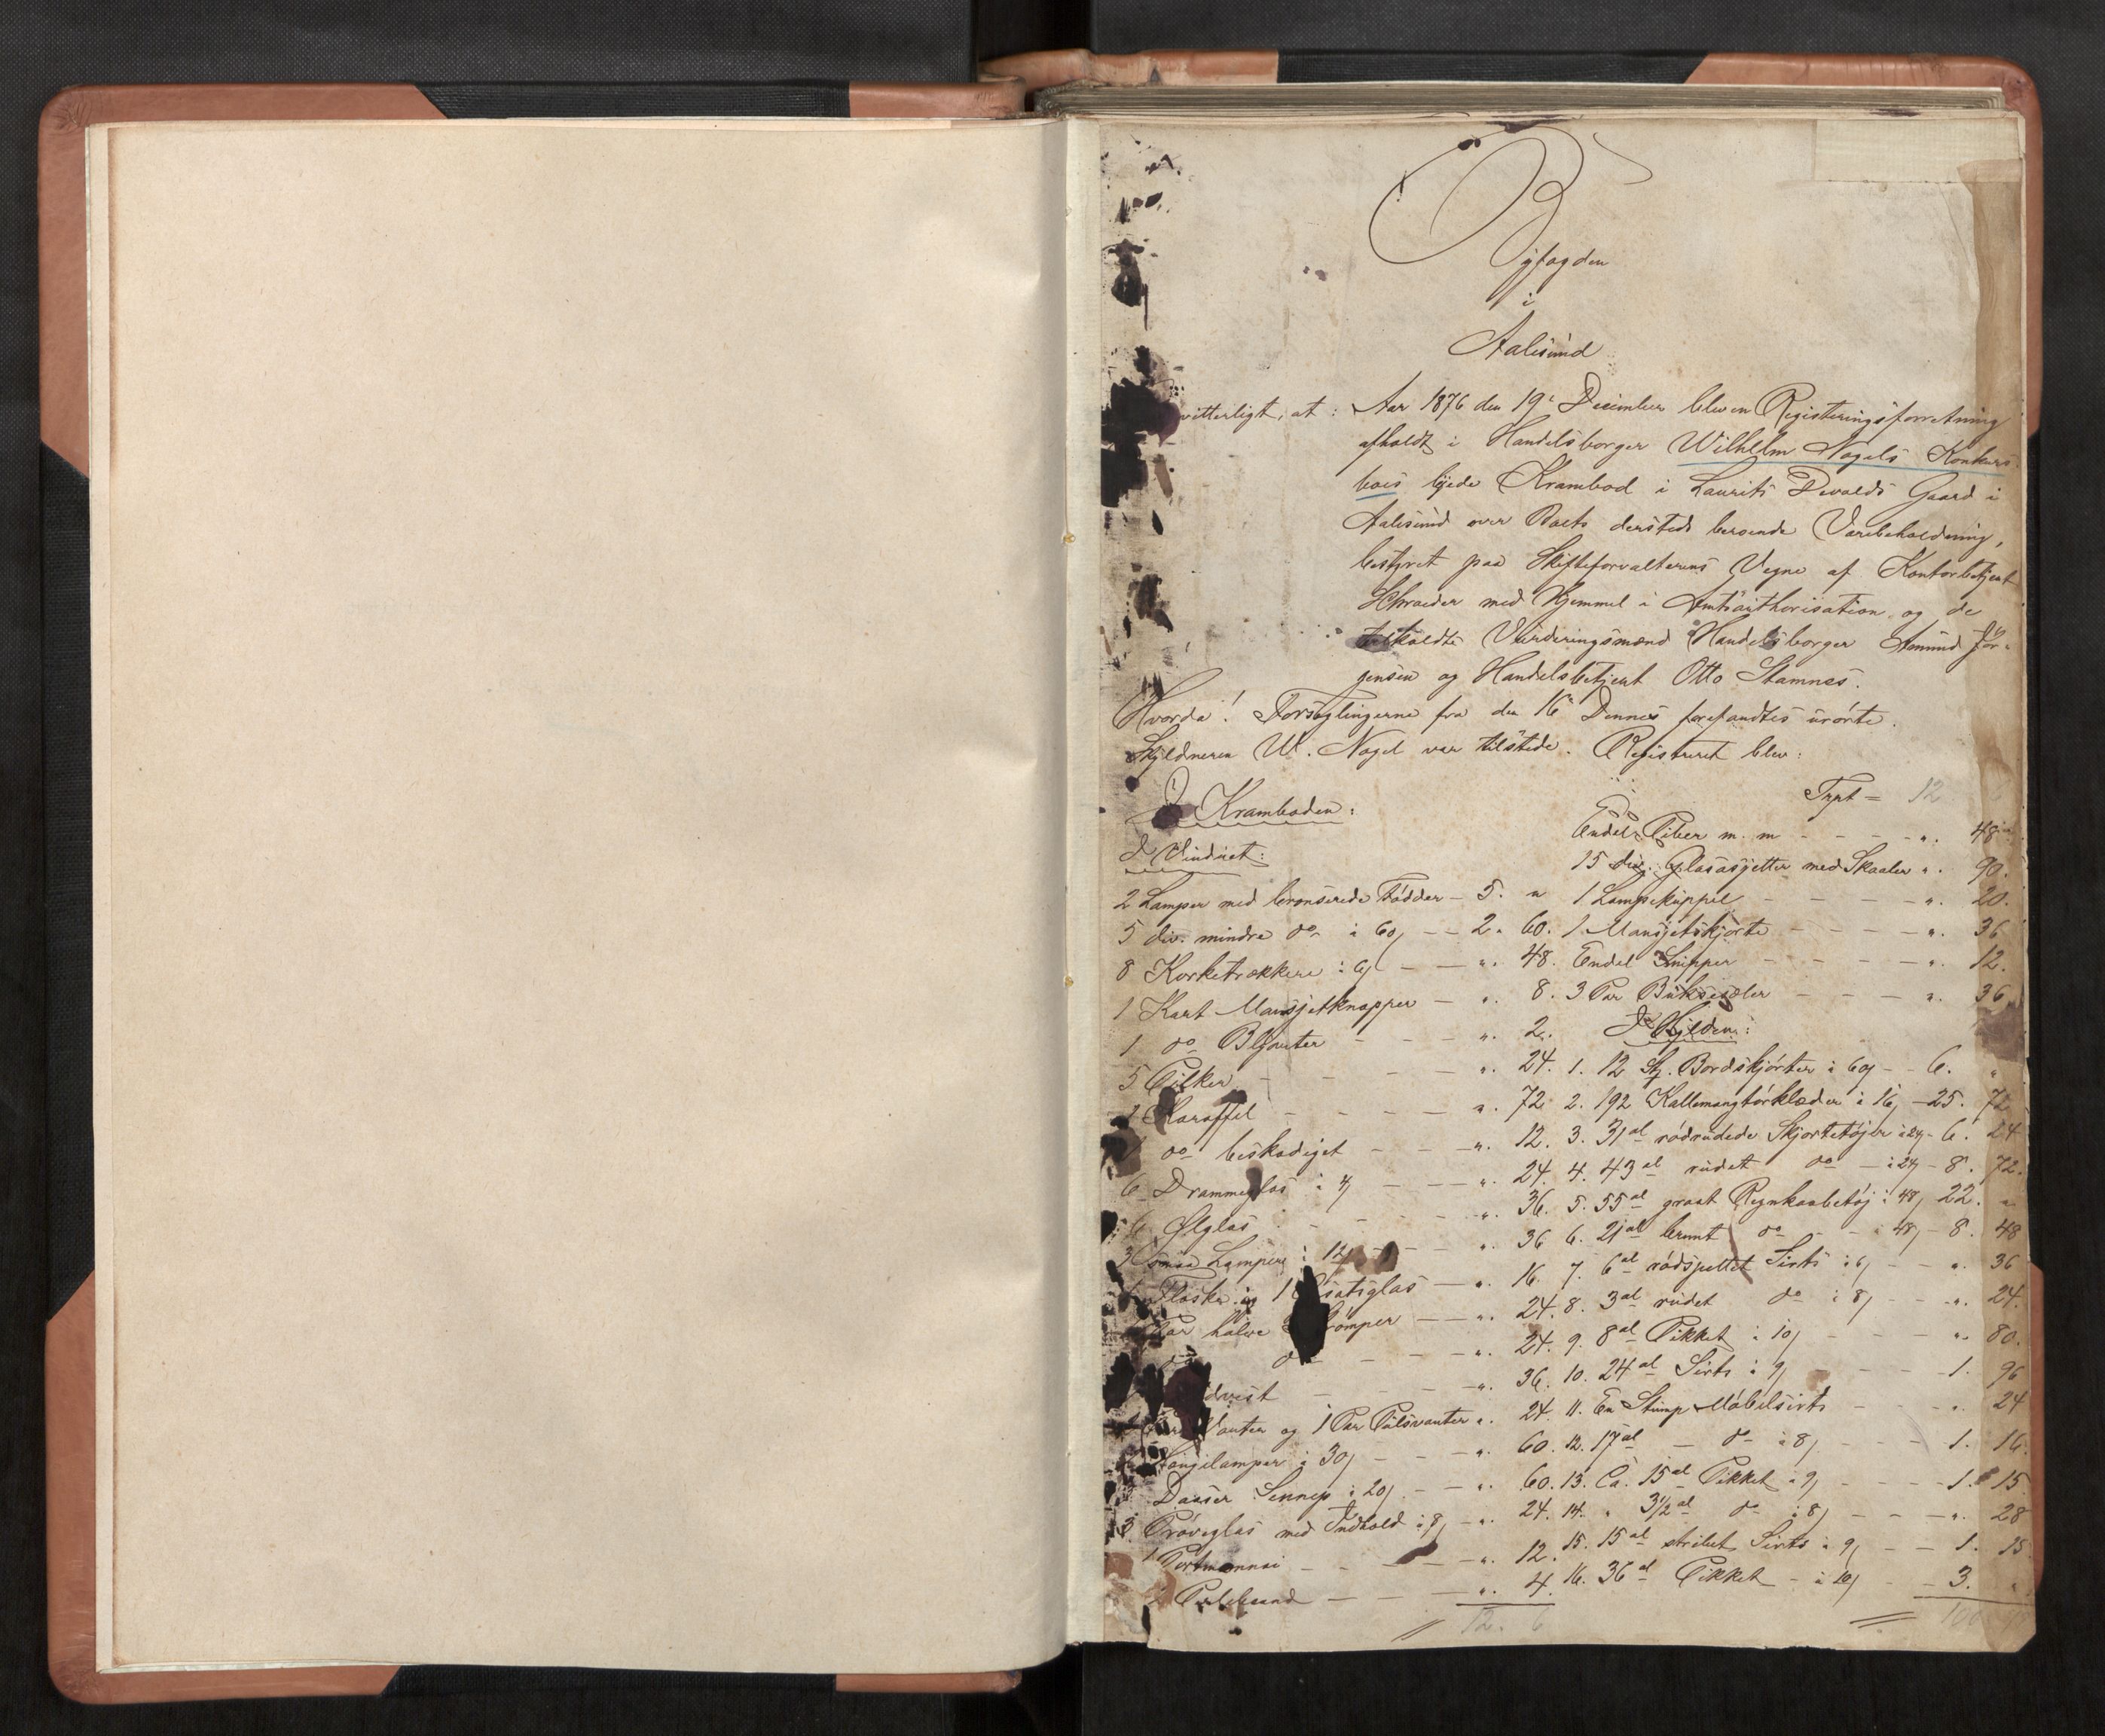 Byfogden
i
Aalesund
vitterligt, at: Aar 1876 den 19de December blev en Registreringsforretning
afholdt i Handelsborger Wilhelm Nagels Konkurs-
boes lejede Krambod i Laurits Devolds Gaard i
Aalesund over Boets dersteds beroende Varebeholdning,
bestyret paa Skifteforvalterens Vegne af Kontorbetjent
Schrøder med Hjemmel i Amtsauthorisation og de
tilkaldte Vurderingsmænd Handelsborger Amund Jør-
gensen og Handelsbetjent Otto Stamnes.
Hvorda! Forseglingerne fra den 16de Dennes forefandtes urørte.
Skyldneren W. Nagel var tilstede. Registreret blev:
I Kramboden:
I Vinduet:
2 Lamper med bronserede Fødder – 5. "
5 div. mindre do à 60 – 2. 60.
8 Korketrækkere à 6 – ". 48.
1 Kart Mansjetknapper – ". 8.
1 do Blyanter – ". 2.
5 Pilker – ". 24.
1 Karaffel – ". 72
do beskadiget – ". 12.
6 Drammeglas à 4 – ". 24.
6 Ølglas – ". 36.
3 smaa Lamper à 12 – ". 36
Flaske og 1 glas – ". 16.
Par halve Strømper – ". 24.
do do – ". 24.
". 36.
Vanter og 1 Par Pulsvanter ". 24.
Hængelamper à 30 – ". 60.
3 Daaser Sennep à 20 – ". 60.
3 Prøveglas med Indhold à 8 – ". 24.
1 Portmonnai – ". 12.
2 – ". 4.
12. 6
Trpt = 12
Endel Piber m. m – ". 48
15 div. Glasasjetter med Skaaler ". 90.
1 Lampekuppel – ". 20.
1 Mansjetskjorte – ". 36
Endel Snipper – ". 12.
3 Par Buksesæler – ". 36
I Hylden:
1. 12 St. Bordskjørter à 60 – 6. "
2. 192 Kallemangtørklæder à 16 – 25. 72
3. 31 al rødrudede Skjortetøjer à 24 – 6. 24
4. 43 al rudet do – à 24 – 8. 72.
5. 55 al graat Regnkaabetøj à 48, 22. "
6. 21 al brunt do – à 48 – 8. 48
7. 6 al rødspettet Sirts à 6 – ". 36
8. 3 al rudet do à 8 – ". 24.
9. 8 al Pikket à 10 – ". 80.
10. 24 al Sirts à 9 – 1. 96
11. En Stump Møbelsirts – ". 24
12. 17 al – do à 8 – 1. 16.
13. Ca. 15 al Pikket à 9 – 1. 15
14. " 3½ al do à 8 – ". 28
15. 15 al stribet Sirts à 9 – 1. 15
16. 36 al Pikket – à 10 – 3. "